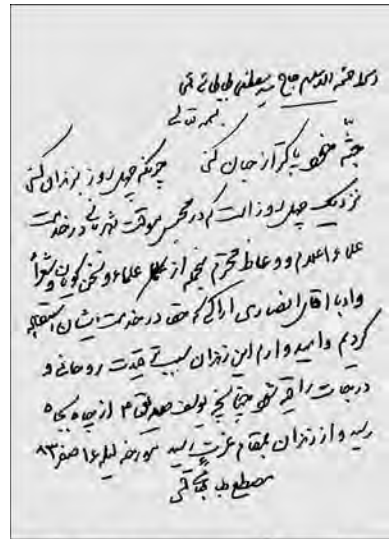 دستخط حجة الاسلام حاج سید مصطفی طباطبائی قمی
بسمه تعالی
جثّه خود پاکتر از جان کنی چونکه چهل روز بزندان کنی
نزدیک چهل روز است که در محبس موقت شهربانی در خدمت
علماء اعلام و وعاظ محترم بخصوص از علماء و سخن گویان و شعرأ
و ادبا آقای انصاری اراکی که حقا در خدمت ایشان استفاده
کردم و امیدوارم این زندان سبب قدرت روحانی و
درجات راقیه شود چنانچه یوسف صدیق از چاه بجاه
رسید و از زندان بمقام عزت رسید مورخه لیله ۱۶ صفر ۸۳
مصطفی طباطبائی قمی